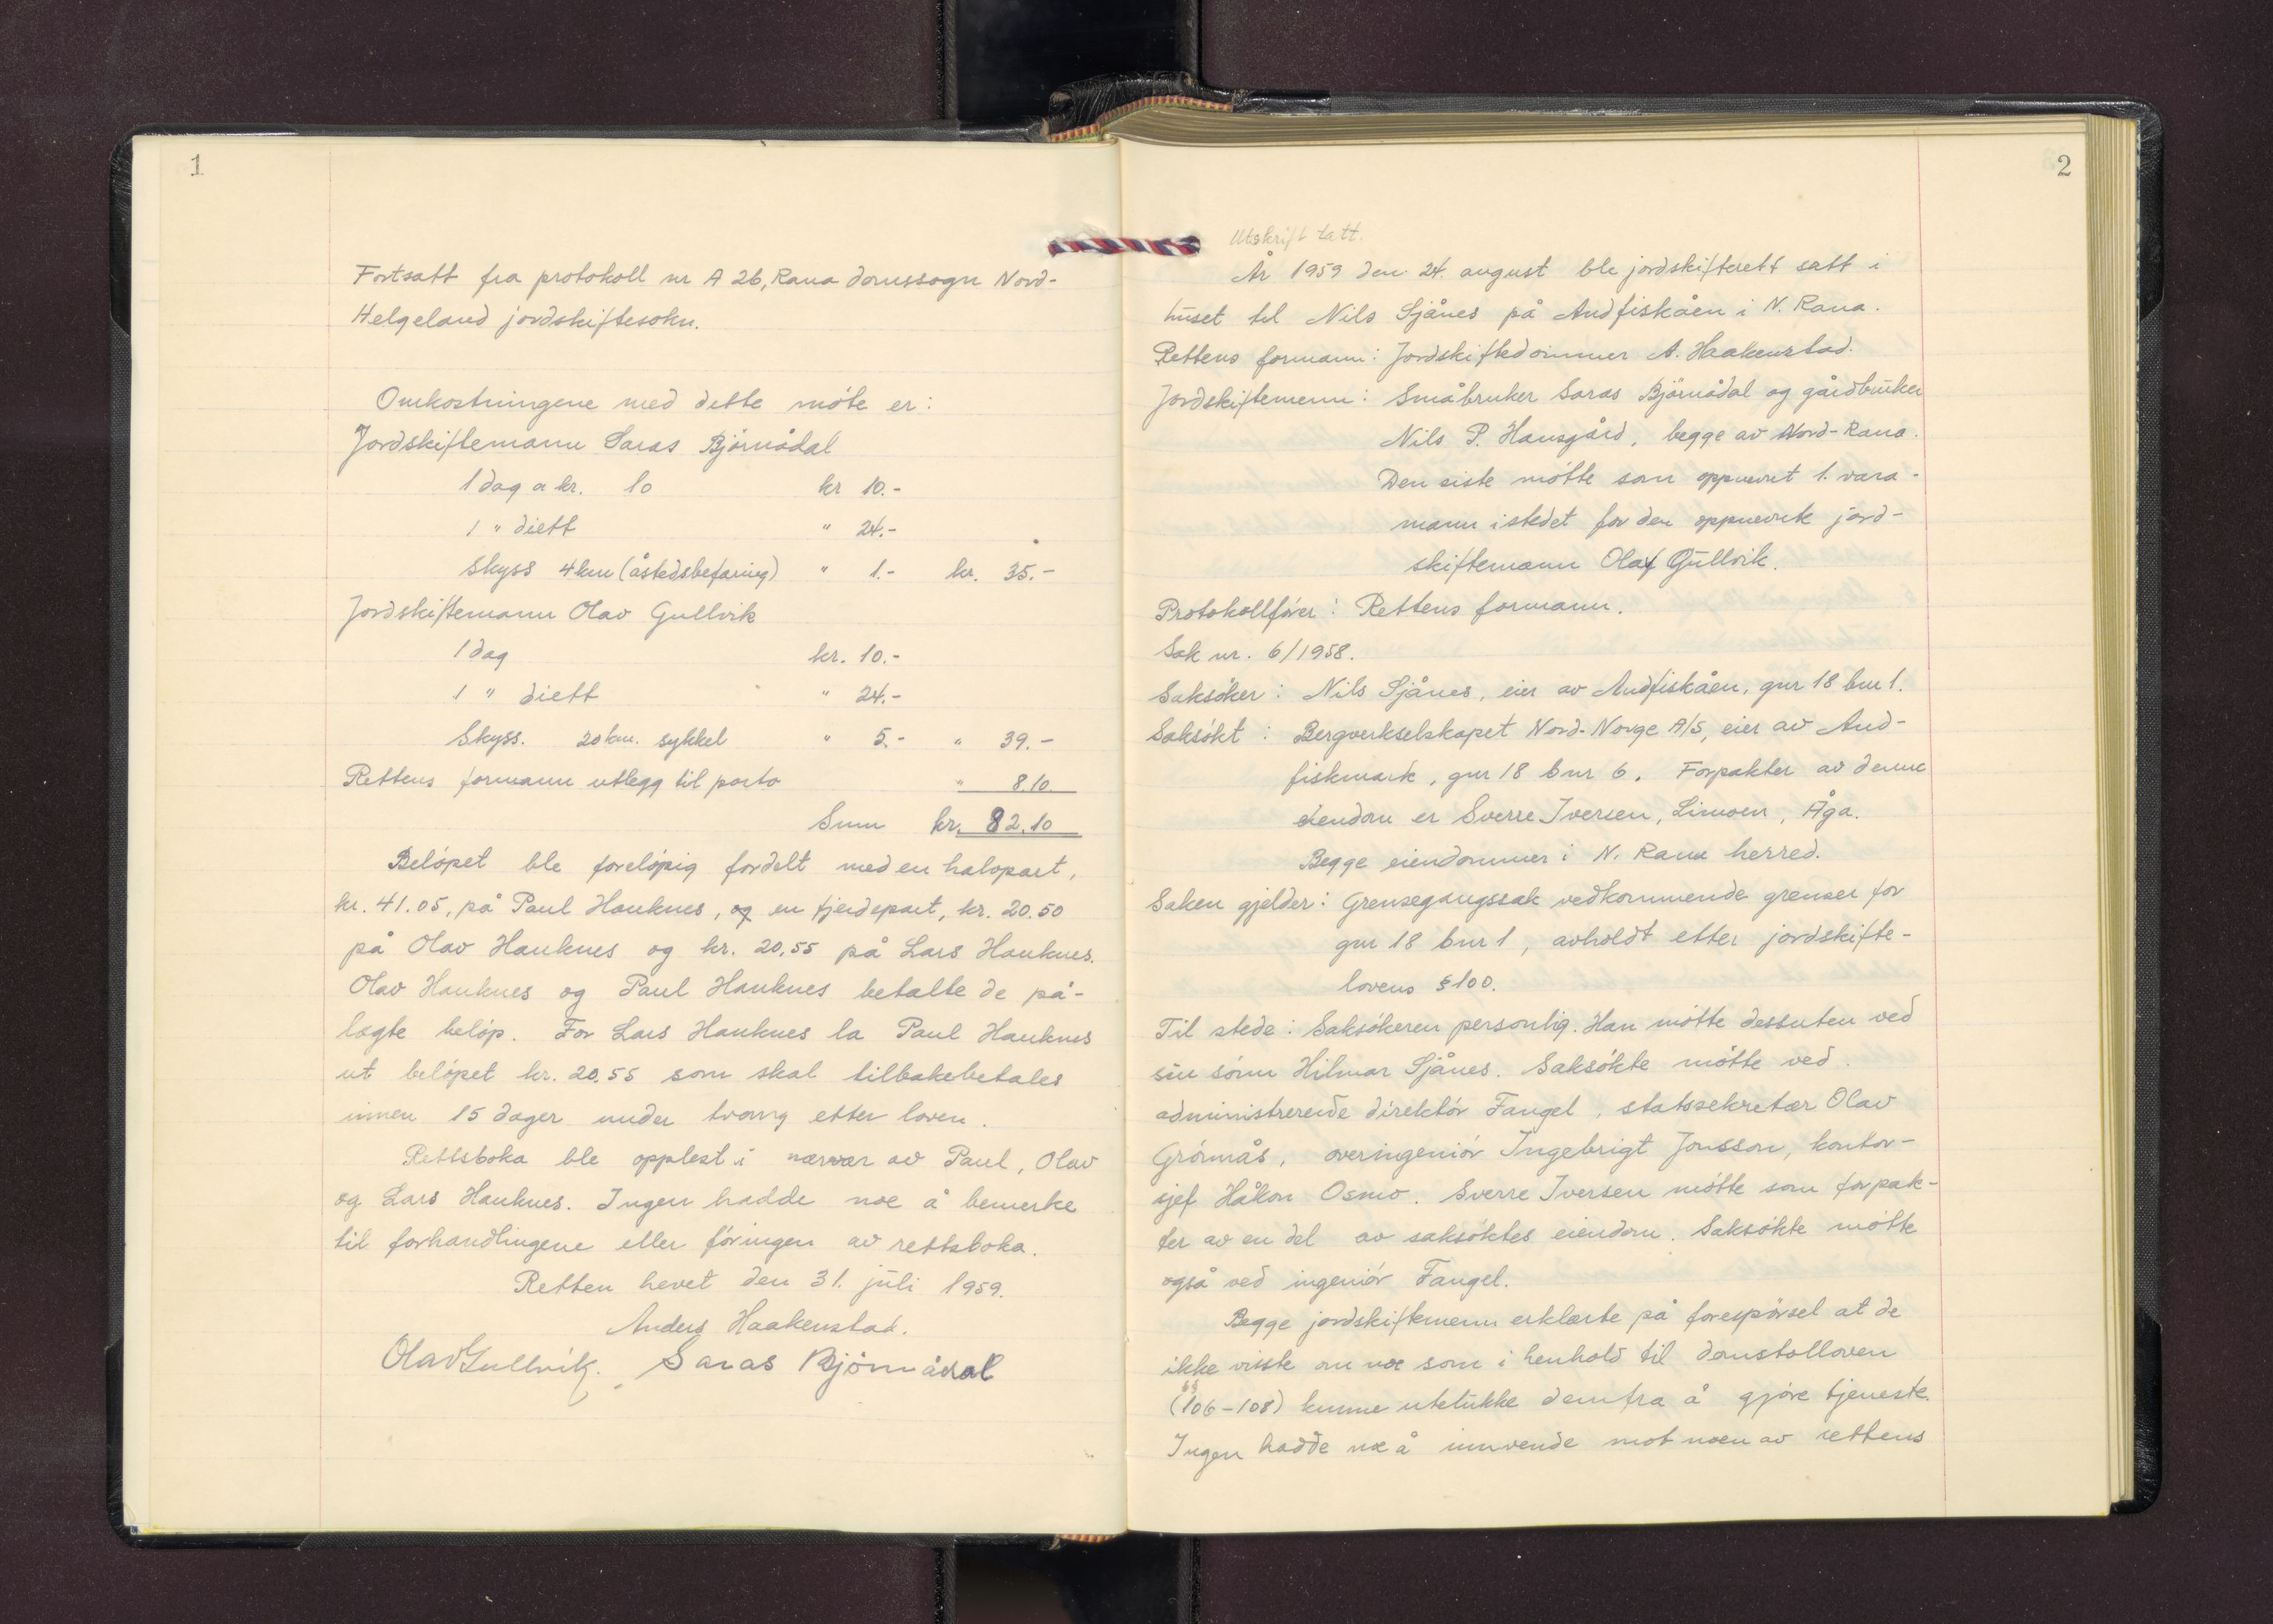 1
Fortsatt fra protokoll nr A 26, Rana domssogn Nord-
Helgeland jordskiftesokn.
Omkostningene med dette möte er:
Jordskiftemann Saras Björnådal
1 dag a kr. 10 kr 10.-
1 " diett " 24.-
Skyss 4 km (åstedsbefaring) " 1.- kr. 35.-
Jordskiftemann Olav Gullvik
1 dag kr. 10.-
1 " diett " 24.-
Skyss. 20 km. sykkel " 5.- " 39.-
Rettens formann utlegg til porto " 8.10
Sum kr. 82.10
Belöpet ble forelöpig fordelt med en halvpart,
kr. 41.05, på Paul Hauknes, og en fjerdepart, kr. 20.50
på Olav Hauknes og kr. 20,55 på Lars Hauknes.
Olav Hauknes og Paul Hauknes betalte de på-
lagte belöp. For Lars Hauknes la Paul Hauknes
ut belöpet kr. 20.55 som skal tilbakebetales
innen 15 dager under tvang etter loven.
Rettsboka ble opplest i nærvær av Paul, Olav
og Lars Hauknes. Ingen hadde noe å bemerke
til forhandlingene eller föringen av rettsboka.
Retten hevet den 31. juli 1959.
Anders Haakenstad.
Olav Gullvik. Saras Björnådal
2
Utskrift tatt.
År 1959 den 24. august ble jordskifterett satt i
huset til Nils Sjånes på Andfiskåen i N. Rana.
Rettens formann: Jordskiftedommer A. Haakenstad.
Jordskiftemenn: Småbruker Saras Björnådal og gårdbruker
Nils P. Hansgård, begge av Nord-Rana.
Den siste mötte som oppnevnt 1. vara-
mann istedet for den oppnevnte jord-
skiftemann Olaf Gullvik.
Protokollförer: Rettens formann.
Sak nr. 6/1958.
Saksöker: Nils Sjånes, eier av Andfiskåen, gnr 18 bnr 1.
Saksökt: Bergverkselskapet Nord-Norge A/S, eier av And-
fiskmark, gnr 18 bnr 6. Forpakter av denne
eiendom er Sverre Iversen, Limoen, Åga.
Begge eiendommer i N. Rana herred.
Saken gjelder: Grensegangssak vedkommende grenser for
gnr 18 bnr 1, avholdt etter jordskifte-
lovens § 100.
Til stede: Saksökeren personlig. Han mötte dessuten ved
sin sönn Hilmar Sjånes. Saksökte mötte ved
administrerende direktör Fangel, statssekretær Olav
Grörmås, overingeniör Ingebrigt Jonsson, kontor-
sjef Håkon Osmo. Sverre Iversen mötte som forpak-
ter av en del av saksöktes eiendom. Saksökte mötte
også ved ingeniör Fangel.
Begge jordskiftemenn erklærte på forespörsel at de
ikke visste om noe som i henhold til domstolloven
(§§ 106-108) kunne utelukke dem fra å gjöre tjeneste.
Ingen hadde noe å innvende mot noen av rettens